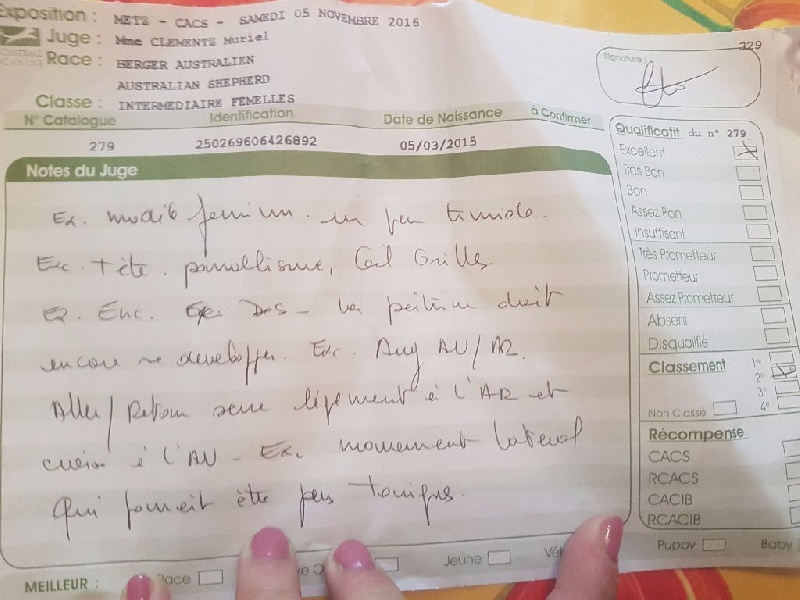 Exposition : METZ - CACS - SAMEDI 05 NOVEMBRE 2016
Juge : Mme CLEMENTZ Muriel
CENTRALE CANINE
Race : BERGER AUSTRALIEN
AUSTRALIAN SHEPHERD
Classe : INTERMEDIAIRE FEMELLES
N° Catalogue Identification Date de Naissance à Confirmer
279 250269606426892 05/03/2015
Notes du Juge
Ex. modèle féminin. un peu timide.
Exc. tête. parallélisme,
Ex. Enc. Exc Dos - la poitrine doit
encore se developper. Exc. Ang AV/AR.
Aller/Retour serré légèrement à l'AR et
à l'AV - Exc. mouvement latéral
qui pourrait être plus tonique.
329
Signature :
Qualificatif du n° 279
Excellent
Très Bon
Bon
Assez Bon
Insuffisant
Très Prometteur
Prometteur
Assez Prometteur
Absent
Disqualifié
Classement 1°
2°
3°
4°
Non Classé
Récompense
CACS
RCACS
CACIB
RCACIB
Puppy Baby
MEILLEUR : Race Jeune